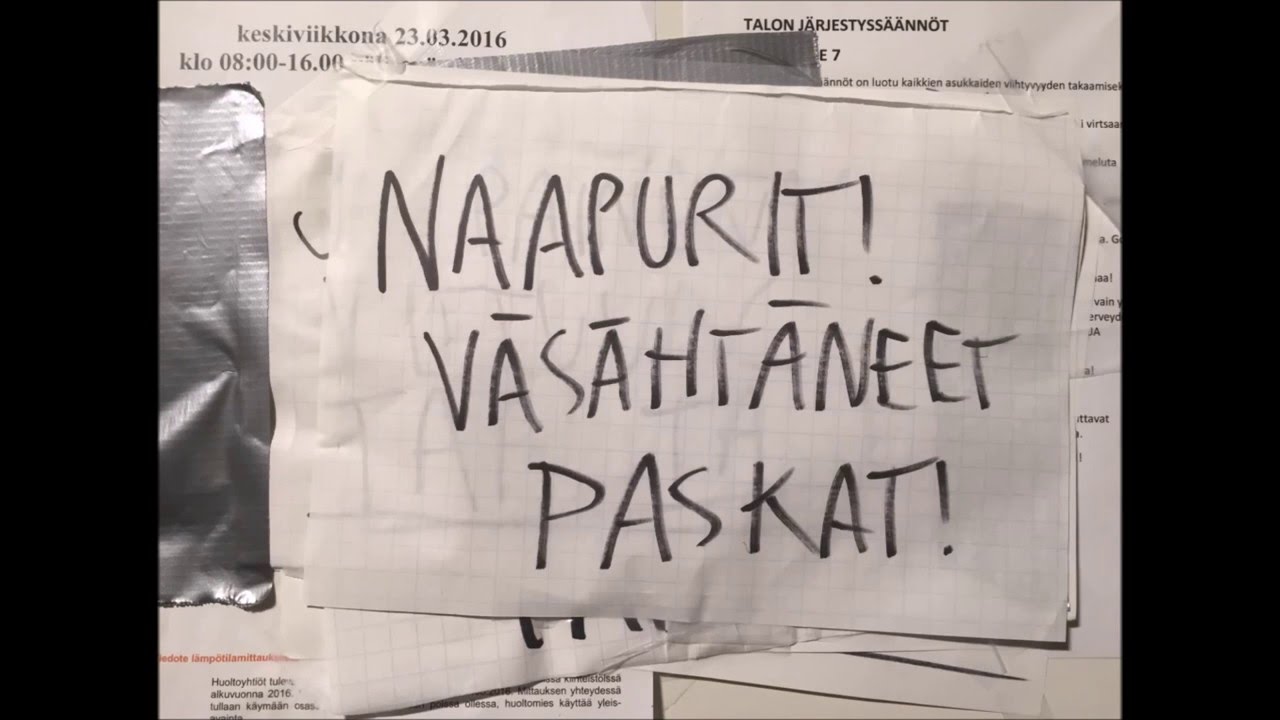 keskiviikkona 23.03.2016
klo 08:00-16.00
TALON JÄRJESTYSSÄÄNNÖT
E 7
äännöt on luotu kaikkien asukkaiden viihtyvyyden takaamisek
i virtsaa
meluta
NAAPURIT!
a. Ge
aa!
vain y
erveyd
JA
VÄSÄHTÄNEET
a!
ttavat
PASKAT!
iedote lämpötilamittauks
Huoltoyhtiöt tule
alkuvuonna 2016.
tullaan käymään osas
avainta
ssa kiinteistössä
2016. Mittauksen yhteydessä
poissa ollessa, huoltomies käyttää yleis-